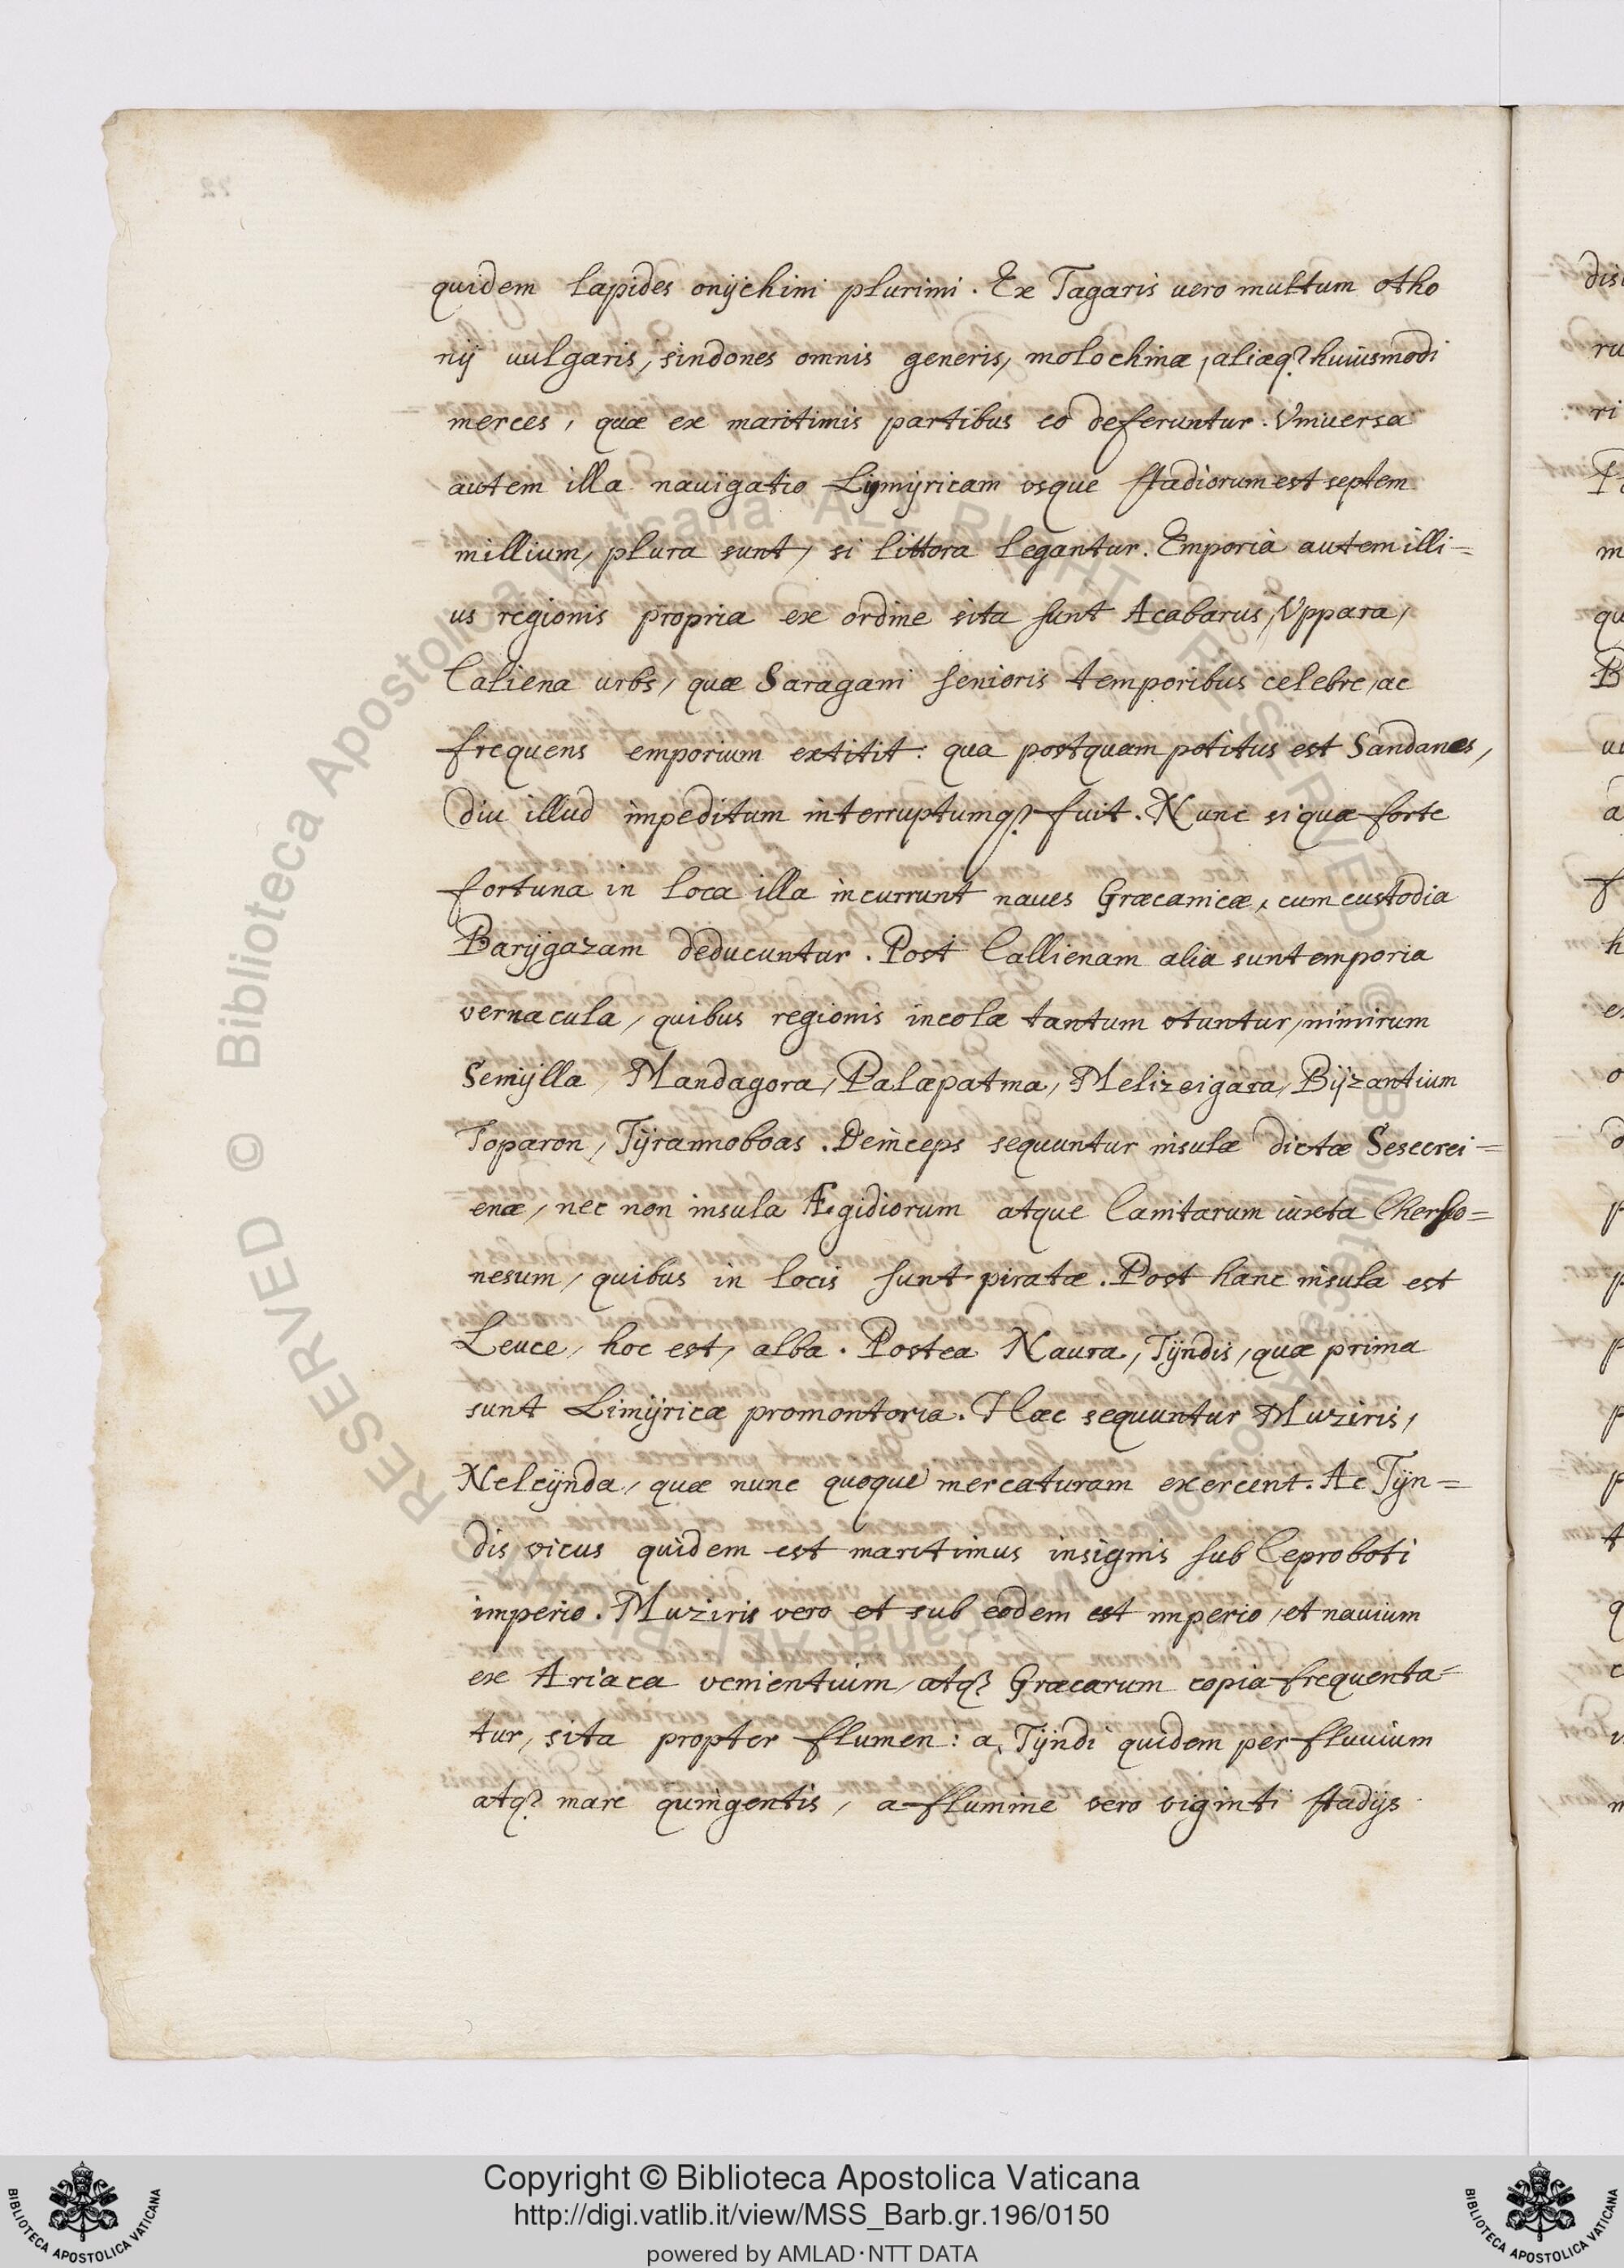 quidem lapides onÿchini plurimi. Ex Tagaris uero multum otho
nij uulgaris, sindones omnis generis, molochinæ, aliæq; huiusmodi
merces, quæ ex maritimis partibus eo deferuntur. Vniuersa
autem illa nauigatio Lÿmÿricam vsque stadiorum est septem
millium, plura sunt, si littora legantur. Emporia autem illi=
us regionis propria ex ordine sita sunt Acabarus, Vppara,
Caliena urbs, quæ Saragani senioris temporibus celebre, ac
frequens emporium extitit: qua postquam potitus est Sandanes,
diu illud impeditum interruptumq; fuit. Nunc si quæ forte
fortuna in loca illa incurrunt naues Græcanicæ, cum custodia
Barÿgazam deducuntur. Post Callienam alia sunt emporia
vernacula, quibus regionis incolæ tantum vtuntur, nimirum
Semÿlla, Mandagora, Palæpatma, Melizeigara, Bÿzantium
Toparon, Tÿrannoboas. Deinceps sequuntur insulæ dictæ Sesecrei=
enæ, nec non insula Ægidiorum atque Canitarum iuxta Cherso=
nesum, quibus in locis sunt piratæ. Post hanc insula est
Leuce, hoc est, alba. Postea Naura, Tÿndis, quæ prima
sunt Limÿricæ promontoria. Hæc sequuntur Muziris,
Nelcÿnda, quæ nunc quoque mercaturam exercent. Ac Tÿn=
dis vicus quidem est maritimus insignis sub Ceproboti
imperio. Muziris vero et sub eodem est imperio, et nauium
ex Ariaca venientium, atq; Græcarum copia frequenta=
tur, sita propter flumen: a Tÿndi quidem per fluuium
atq; mare quingentis, a flumine vero viginti stadijs
Copyright © Biblioteca Apostolica Vaticana
http://digi.vatlib.it/view/MSS_Barb.gr.196/0150
powered by AMLAD·NTT DATA
BIBLIOTECA APOSTOLICA VATICANA
BIBLIOTECA APOSTOLICA VATICANA